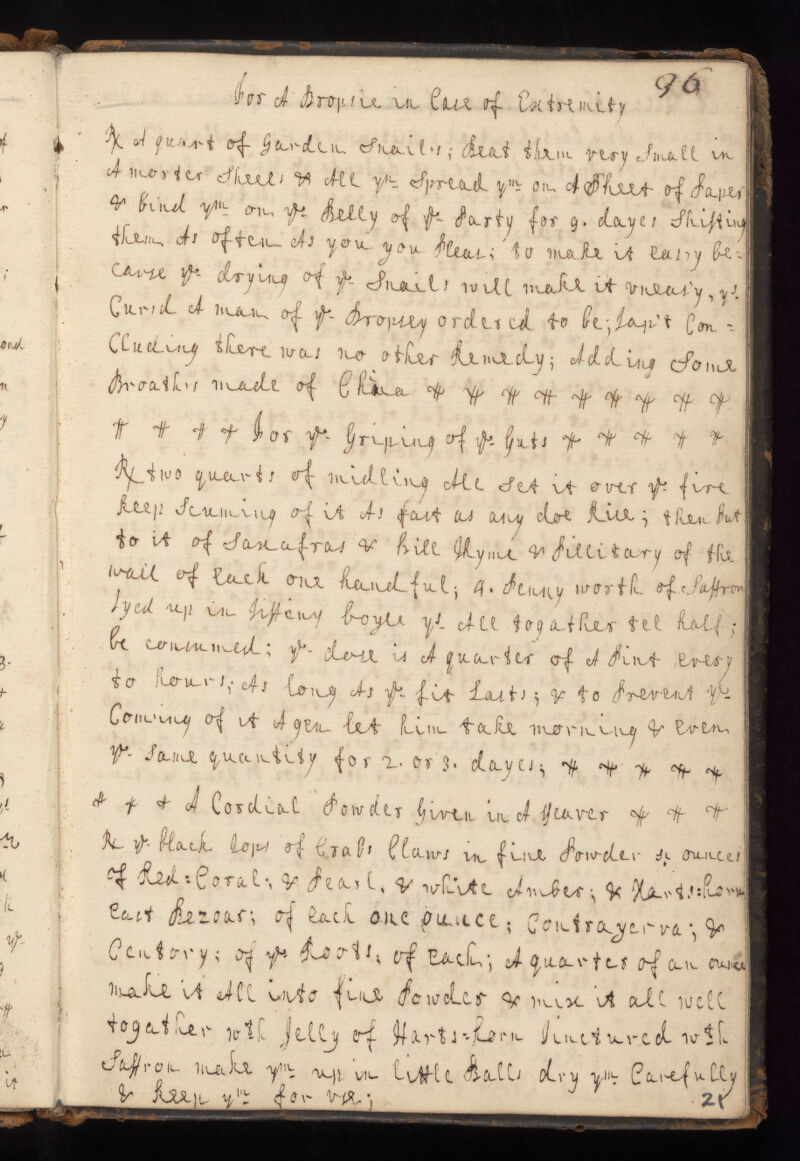 96
For A Dropsie in Case of Extremity
℞ A quart of Garden Snails; Beat them very Small in
A morter Shells & All yn Spread ym on A Sheet of Paper
& bind ym on ye Belly of ye Party for 9. dayes Shifting
them As often As you you Pleas; to make it easy be=
cause ye drying of ye Snails will make it vneasy, ys
Cursd A man of ye Dropsey ordered to be; Con=
Cluding there was no other Remedy; Adding Some
Broaths made of China
For ye Griping of ye Guts
℞ two quarts of midling Ale Set it over ye fire
keep Scuming of it As fast as any doe Rise; then Put
to it of Saxafras & Hill thyme & Pillitary of the
wall of Each one handful; 4. Penny worth of Saffron
tyed up in Tiffeny boyle ys All togather tel half;
be consumed; ye dose is A quarter of A Pint every
to hours; As long As ye fit Lasts; & to Prevent ye
Coming of it Agen let him take morning & even
ye Same quantity for 2. or 3. dayes;
A Cordial Powder Given in A Feaver
℞ ye black tops of Crabs Claws in fine Powder ounces
of Red=Coral; & Pearl, & white Amber; & Harts=horn
East Bezoar; of each one ounce; Contrayerva; &
Centory; of ye Roots; of Each; A quarter of an ounce
make it All into fine Powder & mix it all well
togather wth Jelly of Harts=horn Tinctured wth
Saffron make ym up in little Balls dry ym Carefully
& keep ym for vse;